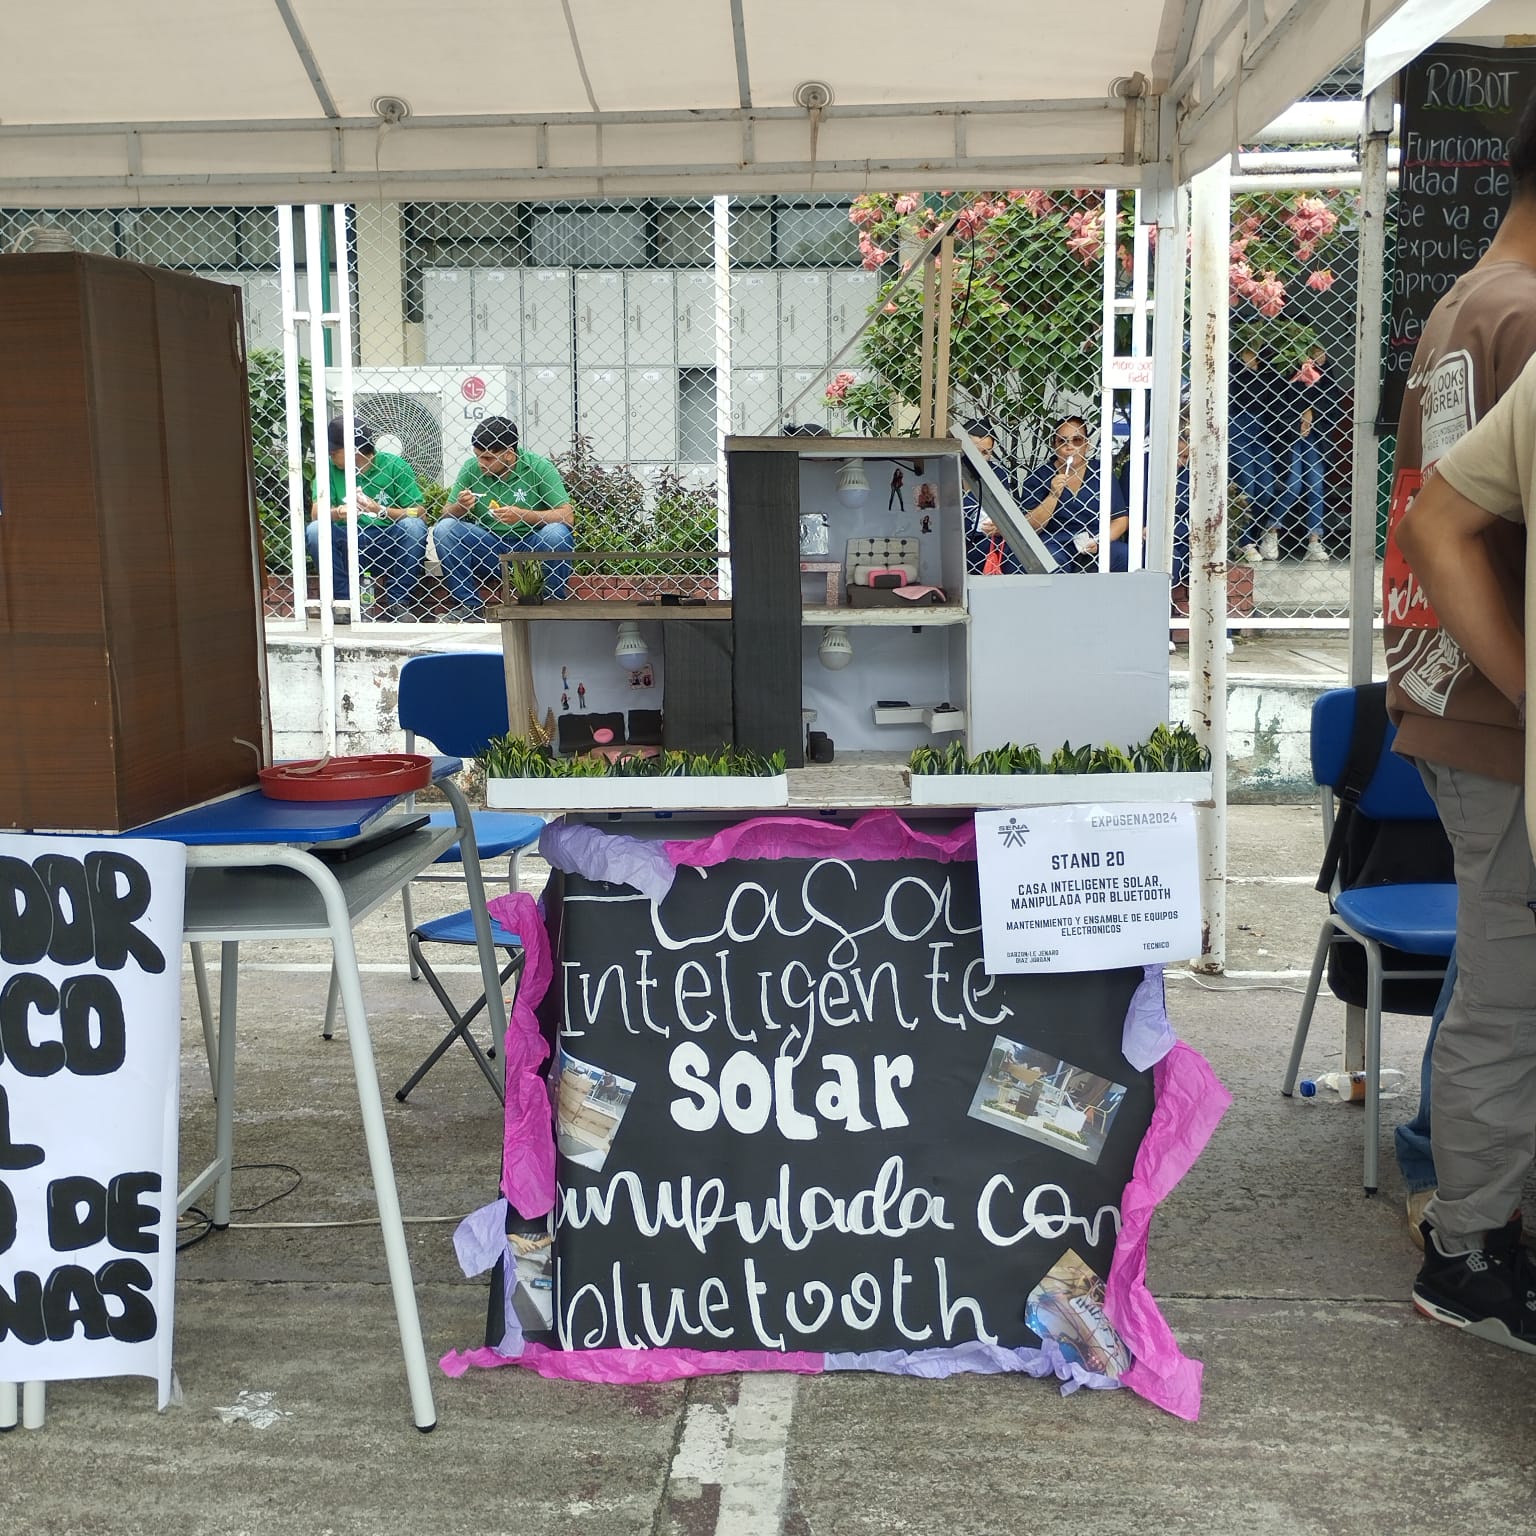 ROBOT
Funciona
lidad de
Se va a
expulsa
LG
LOOKS
GREAT
SENA
EXPOSENA2024
STAND 20
CASA INTELIGENTE SOLAR,
MANIPULADA POR BLUETOOTH
MANTENIMIENTO Y ENSAMBLE DE EQUIPOS
ELECTRONICOS
TECNICO
DIAZ JORDAN
DOR
ICO
L
O DE
NAS
Casa
Inteligente
solar
manipulada con
bluetooth